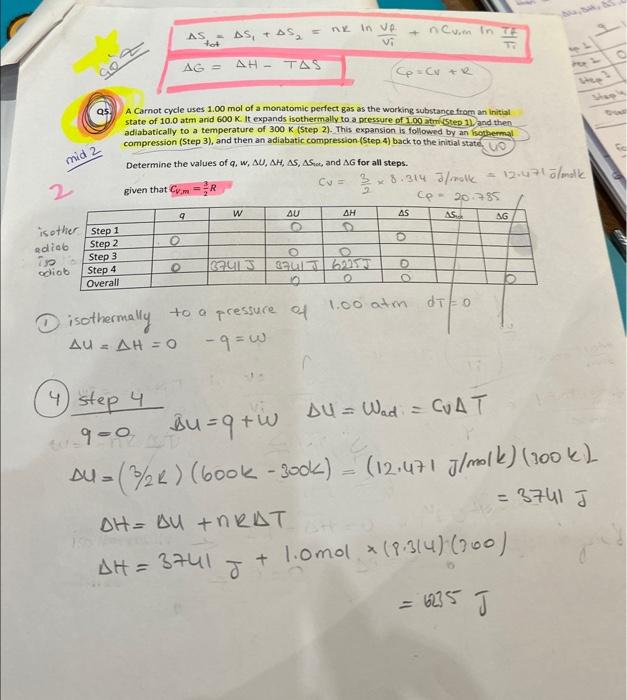 ΔS tot = ΔS₁ + ΔS₂ = nR ln Vf/Vi + nCv,m ln Tf/Ti
ΔG = ΔH - TΔS
Cp = Cv + R
Q5. A Carnot cycle uses 1.00 mol of a monatomic perfect gas as the working substance from an initial
state of 10.0 atm and 600 K. It expands isothermally to a pressure of 1.00 atm (Step 1), and then
adiabatically to a temperature of 300 K (Step 2). This expansion is followed by an isothermal
compression (Step 3), and then an adiabatic compression (Step 4) back to the initial state.
mid 2
Determine the values of q, w, ΔU, ΔH, ΔS, ΔStot, and ΔG for all steps.
2
given that Cv,m = 3/2 R
Cv = 3/2 × 8.314 J/molk = 12.471 J/molk
Cp = 20.785
q W ΔU ΔH ΔS ΔStot ΔG
isother Step 1 0 0
adiab Step 2 0 0
iso Step 3 0 0
adiab Step 4 0 3741 J 3741 J 6235 J 0
Overall 0 0 0 0
① isothermally to a pressure of 1.00 atm dT = 0
ΔU = ΔH = 0 -q = w
④ step 4
q = 0 ΔU = q + w ΔU = Wad = CvΔT
ΔU = (3/2R) (600k - 300k) = (12.471 J/molk) (300 k)
= 3741 J
ΔH = ΔU + nRΔT
ΔH = 3741 J + 1.0mol × (8.314) (300)
= 6235 J